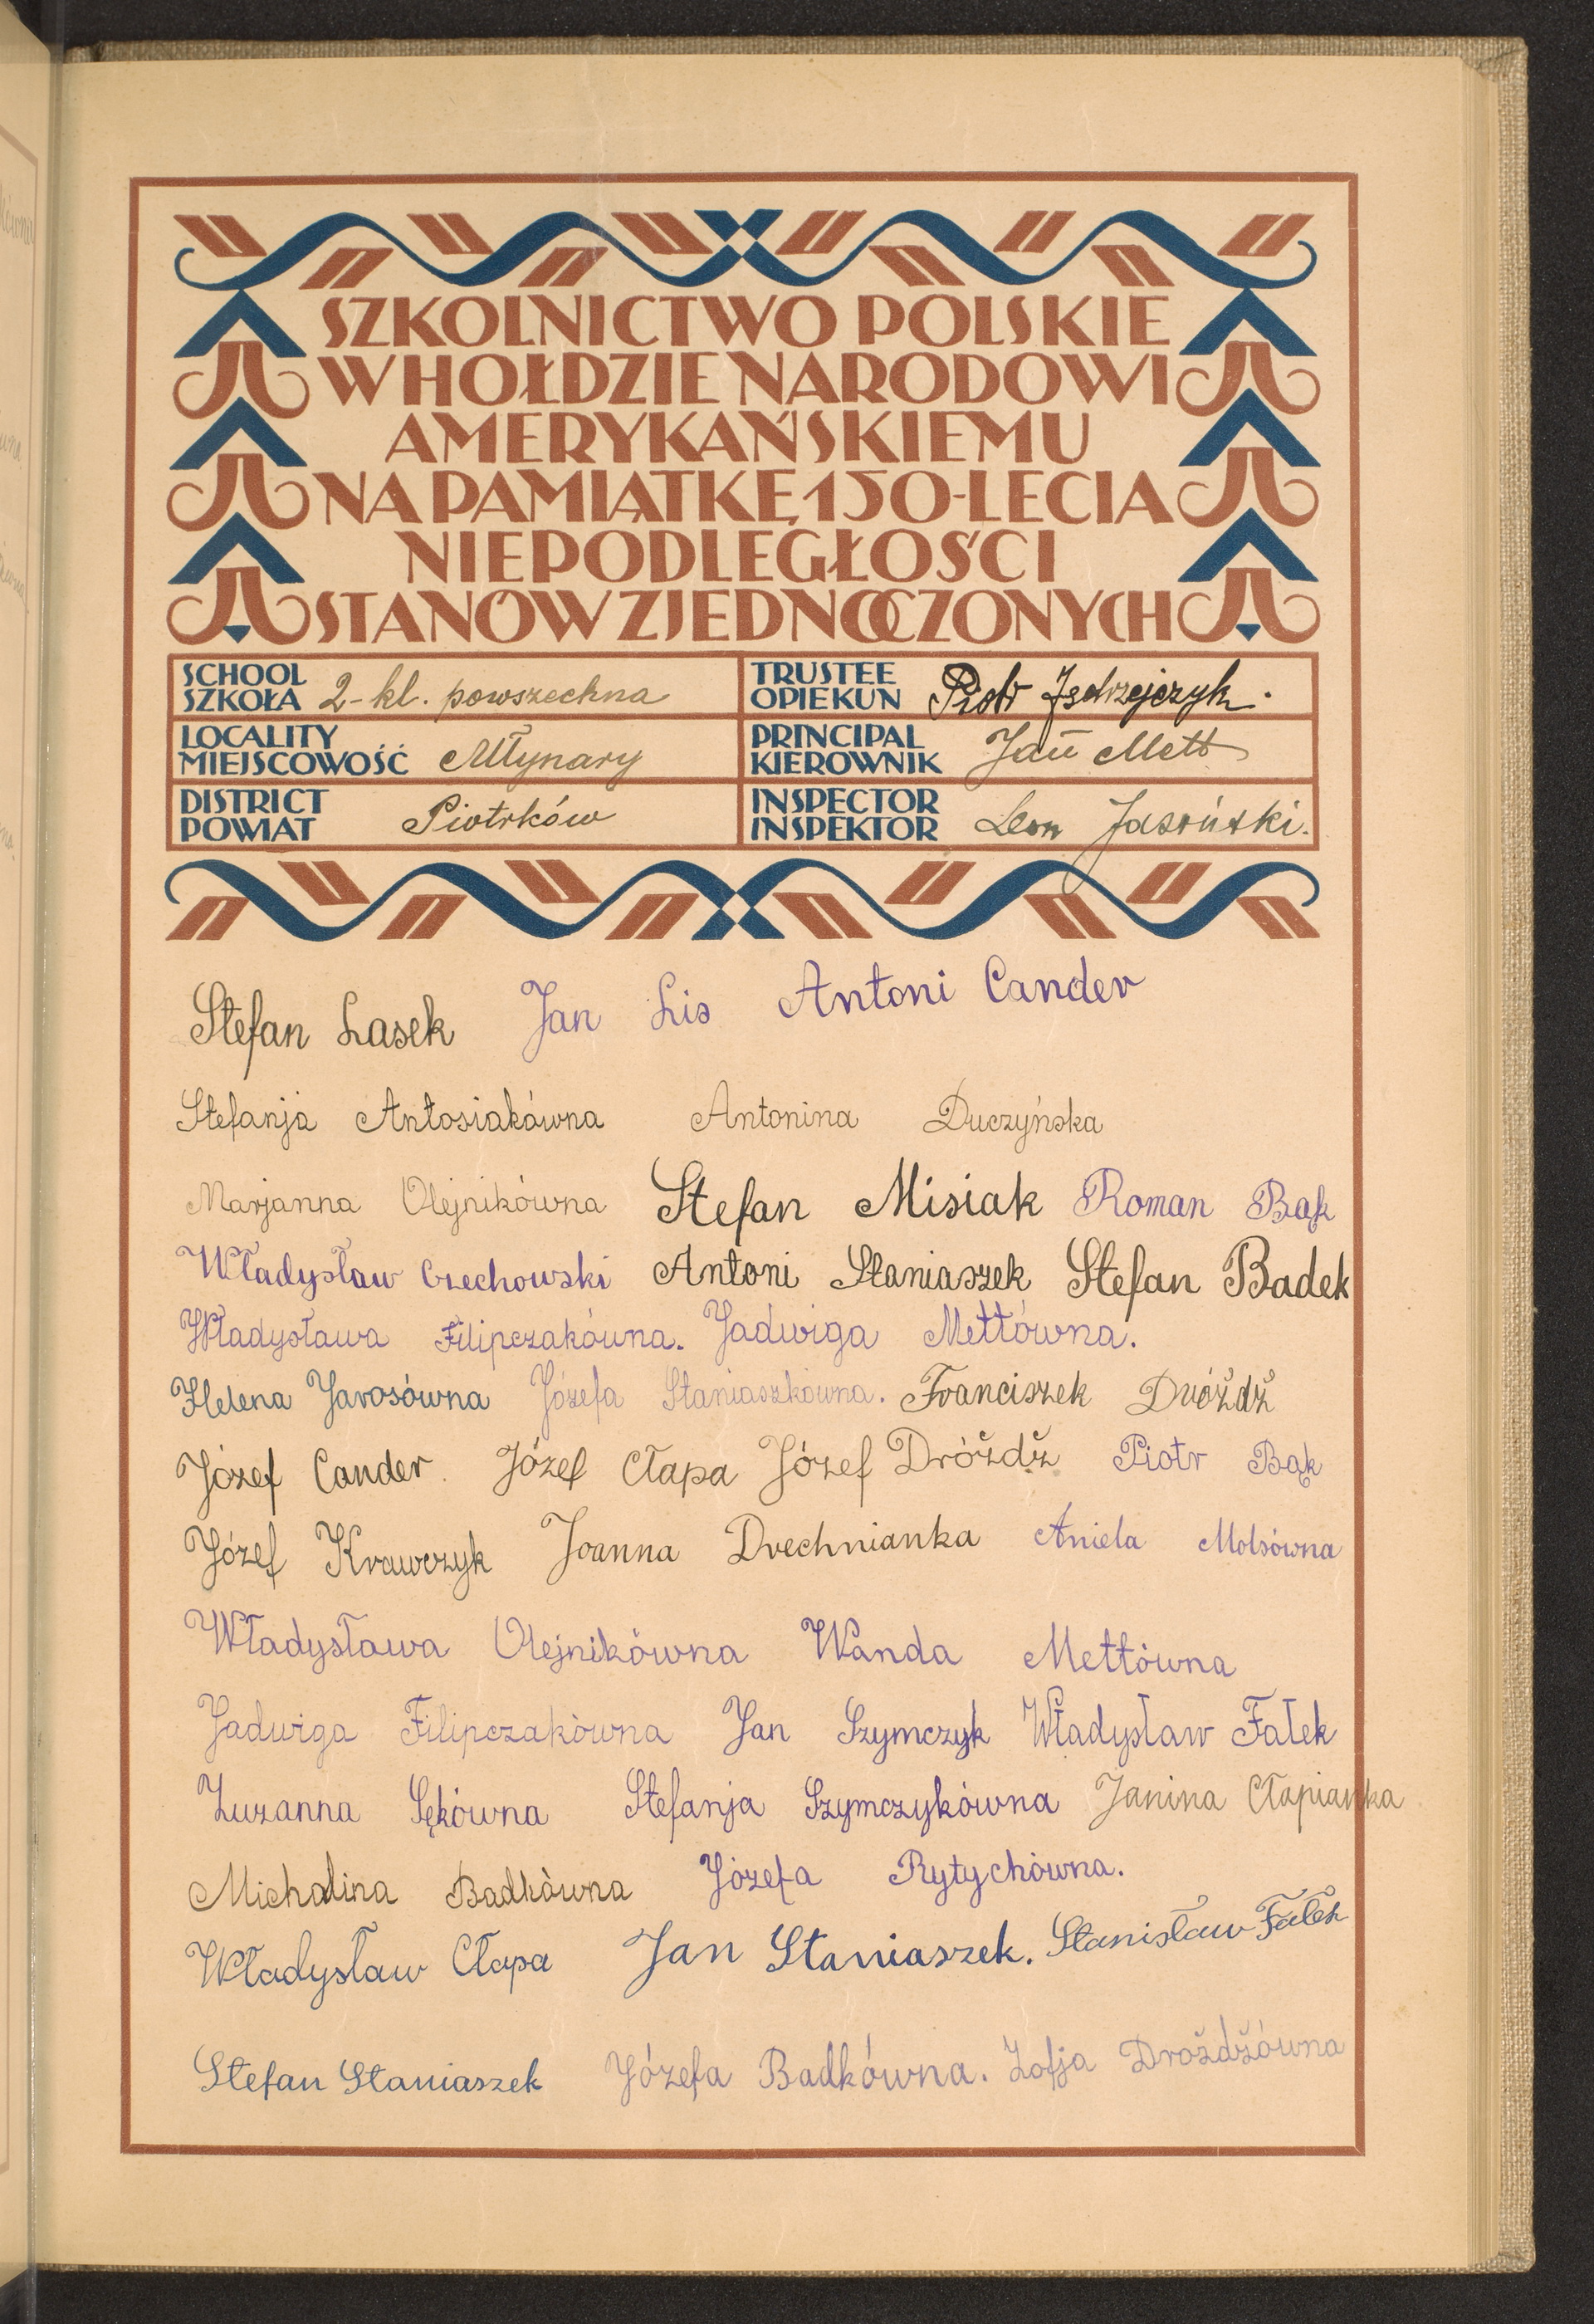 SZKOLNICTWO POLSKIE
W HOŁDZIE NARODOWI
AMERYKAŃSKIEMU
NA PAMIĄTKĘ 150-LECIA
NIEPODLEGŁOŚCI
STANÓW ZJEDNOCZONYCH
SCHOOL
SZKOŁA 2-kl. powszechna
TRUSTEE
OPIEKUN Piotr Jędrzejczyk.
LOCALITY
MIEJSCOWOŚĆ Młynary
PRINCIPAL
KIEROWNIK Jan Mett
DISTRICT
POWIAT Piotrków
INSPECTOR
INSPEKTOR Leon Jasiński.
Stefan Lasek Jan Lis Antoni Cander
Stefanja Antosiakówna Antonina Duczyńska
Marjanna Olejnikówna Stefan Misiak Roman Bąk
Władysław Czechowski Antoni Staniaszek Stefan Badek
Władysława Filipczakówna. Jadwiga Mettówna.
Helena Jarosówna Józefa Staniaszkówna. Franciszek Dróżdż
Józef Cander. Józef Cłapa Józef Dróżdż Piotr Bąk
Józef Krawczyk Joanna Drechnianka Aniela Molsówna
Władysława Olejnikówna Wanda Mettówna
Jadwiga Filipczakówna Jan Szymczyk Władysław Fałek
Zuzanna Sękówna Stefanja Szymczykówna Janina Cłapianka
Michalina Badkówna Józefa Rytychówna.
Władysław Cłapa Jan Staniaszek. Stanisław Fałek
Stefan Staniaszek Józefa Badkówna. Zofja Drożdżówna